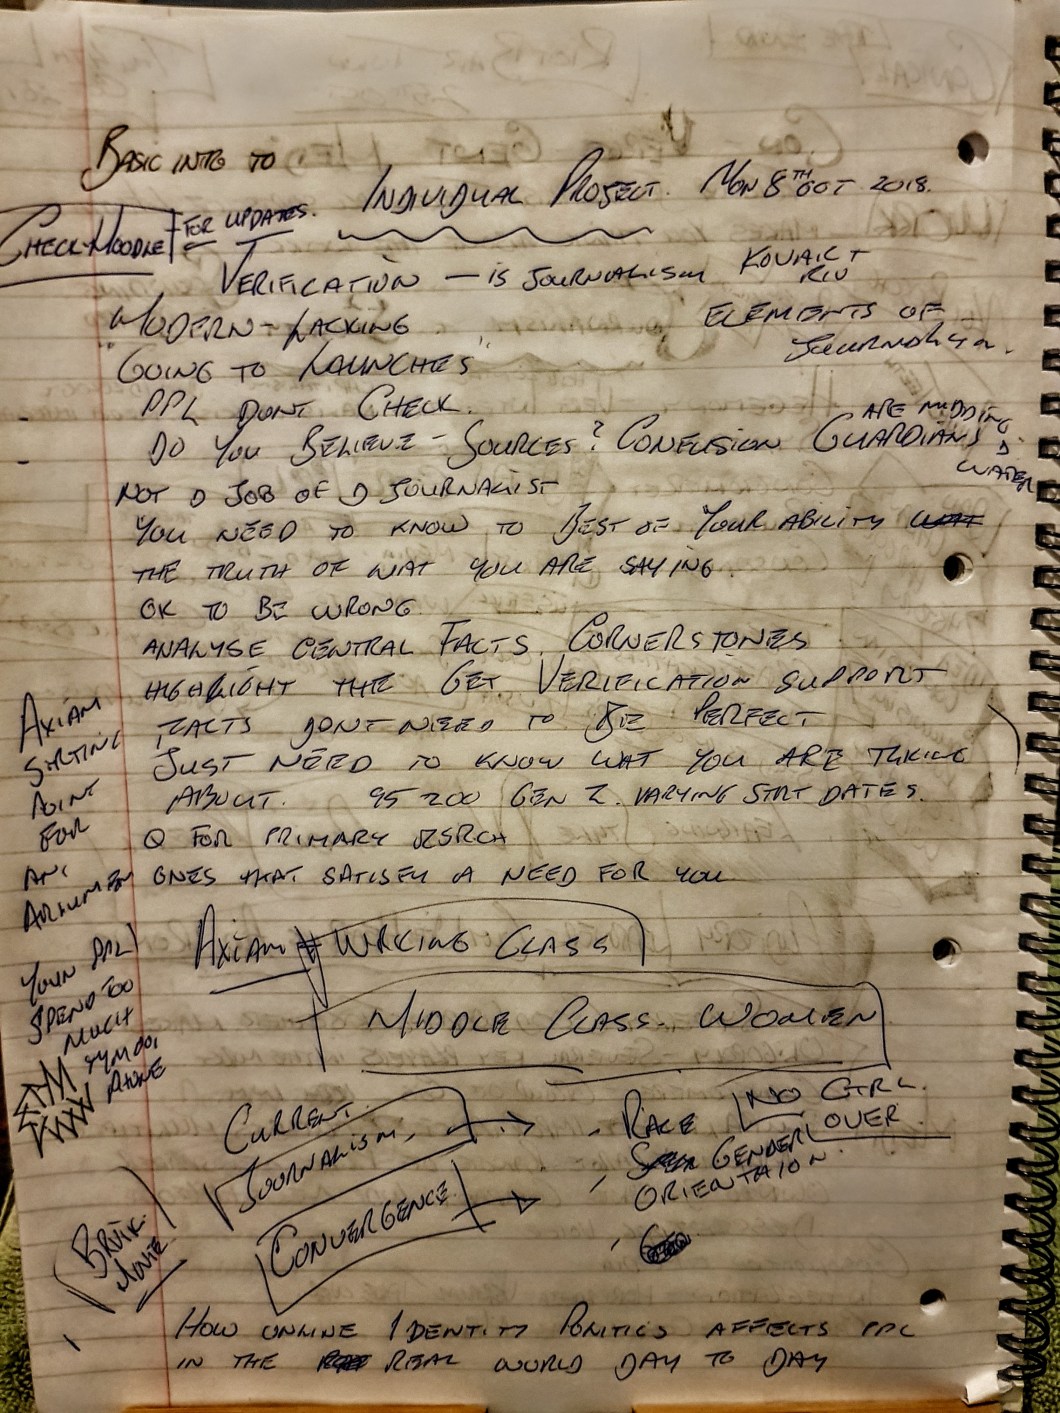 BASIC INTRO TO
INDIVIDUAL PROJECT. MON 8TH OCT 2018.
CHECK MOODLE FOR UPDATES.
VERIFICATION — IS JOURNALISM
ELEMENTS OF
JOURNALISM.
"MODERN - LACKING
GOING TO LAUNCHES"
PPL DONT CHECK.
DO YOU BELIEVE - SOURCES? CONFUSION GUARDIANS
ARE MUDDING
D
WATER
NOT D JOB OF D JOURNALIST
YOU NEED TO KNOW TO BEST OF YOUR ABILITY
THE TRUTH OF WAT YOU ARE SAYING.
OK TO BE WRONG
ANALYSE CENTRAL FACTS. CORNERSTONES
HIGHLIGHT THE GET. VERIFICATION SUPPORT
FACTS DONT NEED TO BE PERFECT
JUST NEED TO KNOW WAT YOU ARE TALKING
ABOUT. 95 200 GEN Z. VARYING STRT DATES.
Q FOR PRIMARY RSRCH
ONES THAT SATISFY A NEED FOR YOU
AXIAM
STRTING
POINT
FOR
AN
ARGUMEN
AXIAM # WORKING CLASS
MIDDLE CLASS. WOMEN
PPL
SPEND TOO
MUCH
ALONE
CURRENT
JOURNALISM,
CONVERGENCE
- RACE NO CTRL
OVER
- GENDER
ORIENTAION.
BRIK
MOVIE
HOW ONLINE IDENTITY POLITICS AFFECTS PPL
IN THE REAL WORLD DAY TO DAY